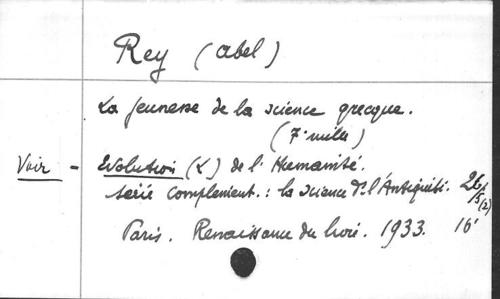 Rey (Abel)
La jeunesse de la science grecque.
(7e mille)
Voir - Evolution (L') de l'Humanité.
Série complément. : la science ds l'Antiquité.
Paris. Renaissance du livre. 1933. 16°